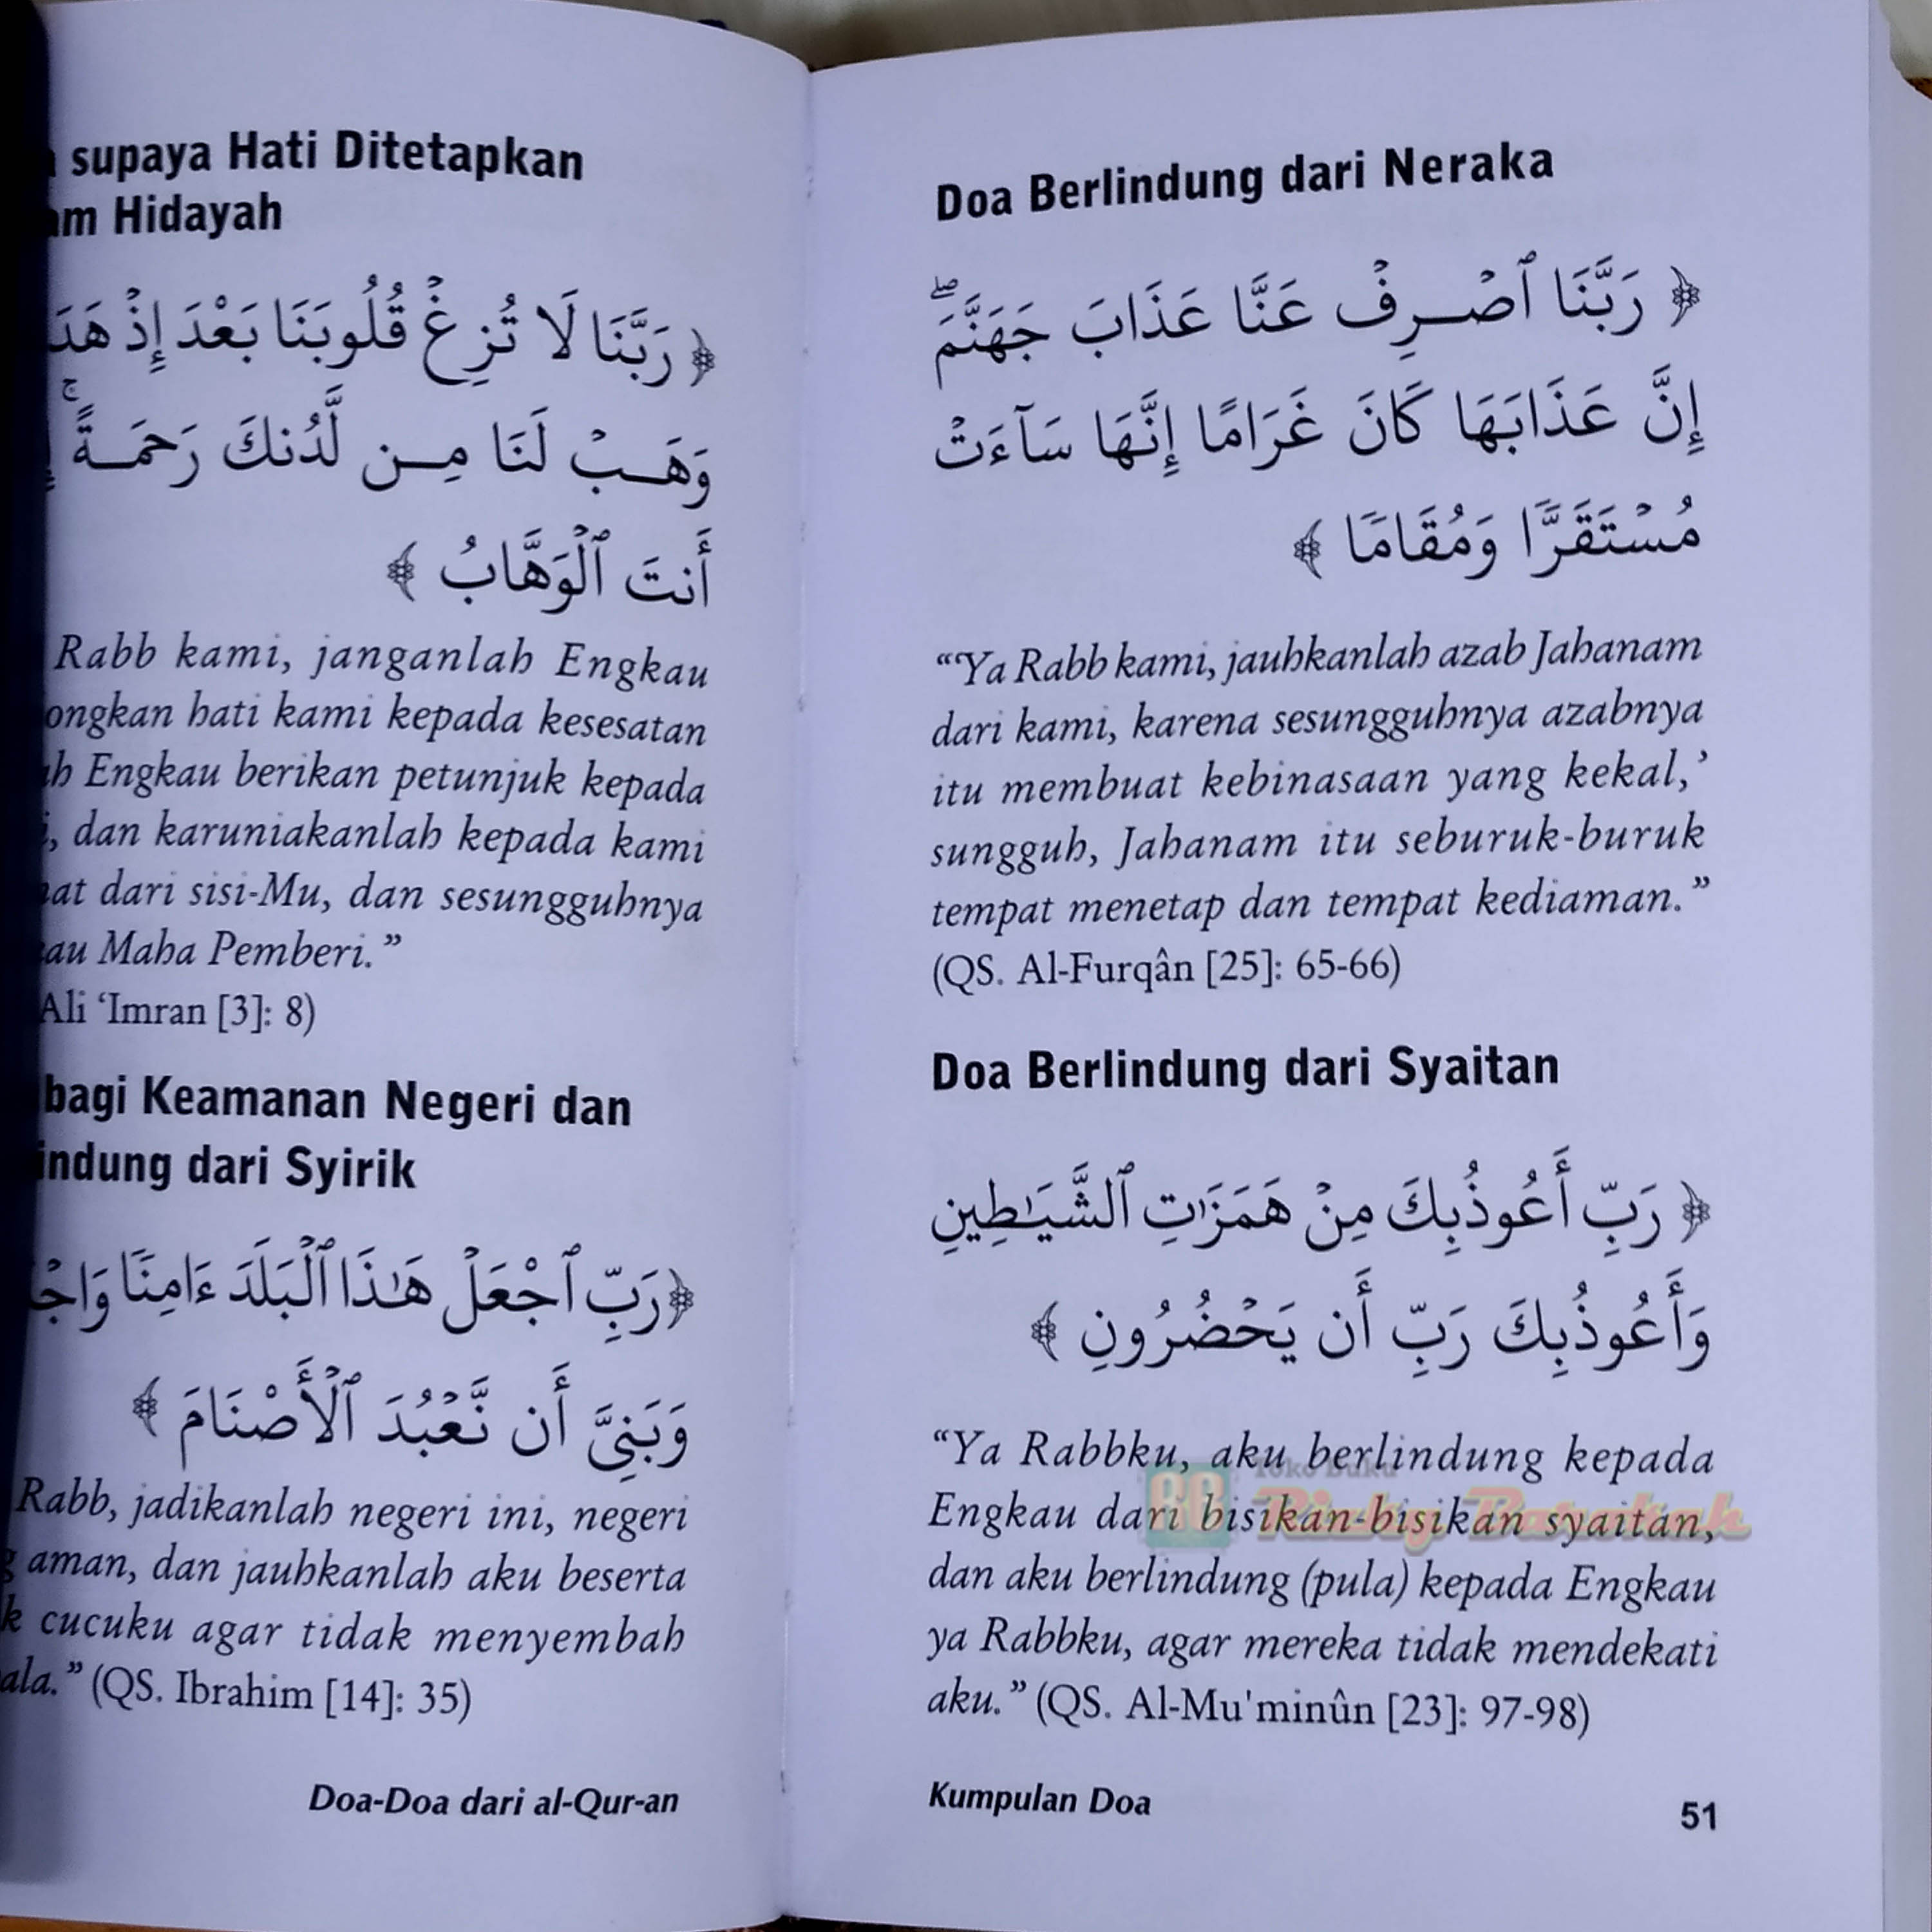 supaya Hati Ditetapkan
Hidayah
﴿ رَبَّنَا لَا تُزِغْ قُلُوبَنَا بَعْدَ إِذْ
وَهَبْ لَنَا مِن لَّدُنكَ رَحْمَةً ۚ
أَنتَ ٱلْوَهَّابُ ﴾
Rabb kami, janganlah Engkau
hati kami kepada kesesatan
Engkau berikan petunjuk kepada
dan karuniakanlah kepada kami
dari sisi-Mu, dan sesungguhnya
Maha Pemberi.”
Ali ‘Imran [3]: 8)
bagi Keamanan Negeri dan
dari Syirik
﴿ رَبِّ ٱجْعَلْ هَـٰذَا ٱلْبَلَدَ ءَامِنًا
وَبَنِىَّ أَن نَّعْبُدَ ٱلْأَصْنَامَ ﴾
Rabb, jadikanlah negeri ini, negeri
aman, dan jauhkanlah aku beserta
cucuku agar tidak menyembah
(QS. Ibrahim [14]: 35)
Doa-Doa dari al-Qur-an
Doa Berlindung dari Neraka
﴿ رَبَّنَا ٱصْرِفْ عَنَّا عَذَابَ جَهَنَّمَ ۖ
إِنَّ عَذَابَهَا كَانَ غَرَامًا إِنَّهَا سَآءَتْ
مُسْتَقَرًّا وَمُقَامًا ﴾
“‘Ya Rabb kami, jauhkanlah azab Jahanam
dari kami, karena sesungguhnya azabnya
itu membuat kebinasaan yang kekal,’
sungguh, Jahanam itu seburuk-buruk
tempat menetap dan tempat kediaman.”
(QS. Al-Furqân [25]: 65-66)
Doa Berlindung dari Syaitan
﴿ رَبِّ أَعُوذُ بِكَ مِنْ هَمَزَٰتِ ٱلشَّيَـٰطِينِ
وَأَعُوذُ بِكَ رَبِّ أَن يَحْضُرُونِ ﴾
“Ya Rabbku, aku berlindung kepada
Engkau dari bisikan-bisikan syaitan,
dan aku berlindung (pula) kepada Engkau
ya Rabbku, agar mereka tidak mendekati
aku.” (QS. Al-Mu'minûn [23]: 97-98)
Toko Buku
Kumpulan Doa
51